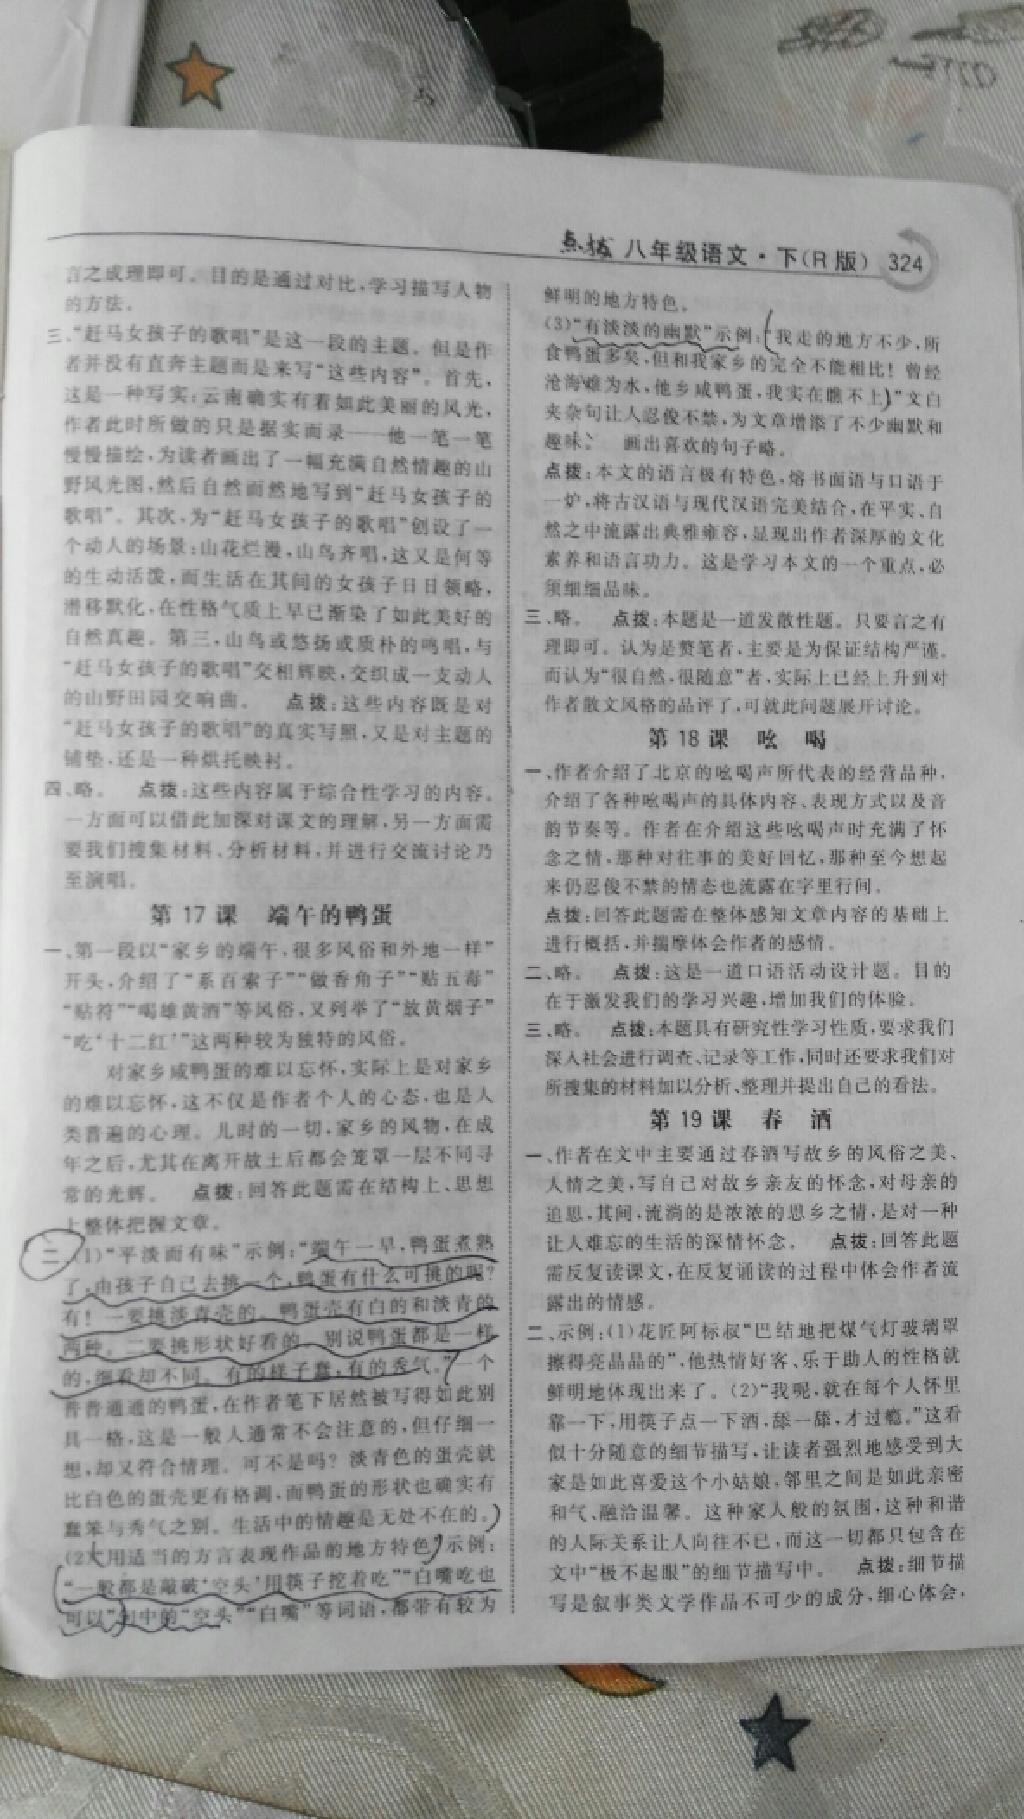 点拨 八年级语文·下(R版) 324
言之成理即可。目的是通过对比,学习描写人物
的方法。
三、“赶马女孩子的歌唱”是这一段的主题。但是作
者并没有直奔主题而是来写“这些内容”。首先,
这是一种写实:云南确实有着如此美丽的风光,
作者此时所做的只是据实而录——他一笔一笔
慢慢描绘,为读者画出了一幅充满自然情趣的山
野风光图,然后自然而然地写到“赶马女孩子的
歌唱”。其次,为“赶马女孩子的歌唱”创设了一
个动人的场景:山花烂漫,山鸟齐唱,这又是何等
的生动活泼,而生活在其间的女孩子日日领略,
潜移默化,在性格气质上早已渐染了如此美好的
自然真趣。第三,山鸟或悠扬或质朴的鸣唱,与
“赶马女孩子的歌唱”交相辉映,交织成一支动人
的山野田园交响曲。 点拨:这些内容既是对
“赶马女孩子的歌唱”的真实写照,又是对主题的
铺垫,还是一种烘托映衬。
四、略。 点拨:这些内容属于综合性学习的内容。
一方面可以借此加深对课文的理解,另一方面需
要我们搜集材料、分析材料,并进行交流讨论乃
至演唱。
第 17 课 端午的鸭蛋
一、第一段以“家乡的端午,很多风俗和外地一样”
开头,介绍了“系百索子”“做香角子”“贴五毒”
“贴符”“喝雄黄酒”等风俗,又列举了“放黄烟子”
“吃‘十二红’”这两种较为独特的风俗。
对家乡咸鸭蛋的难以忘怀,实际上是对家乡
的难以忘怀,这不仅是作者个人的心态,也是人
类普遍的心理。儿时的一切,家乡的风物,在成
年之后,尤其在离开故土后都会笼罩一层不同寻
常的光辉。 点拨:回答此题需在结构上、思想
上整体把握文章。
二、(1)“平淡而有味”示例:“端午一早,鸭蛋煮熟
了,由孩子自己去挑一个,鸭蛋有什么可挑的呢?
有!一要挑淡青壳的。鸭蛋壳有白的和淡青的
两种。二要挑形状好看的。别说鸭蛋都是一样
的,细看却不同。有的样子蠢,有的秀气。”一个
普普通通的鸭蛋,在作者笔下居然被写得如此别
具一格,这是一般人通常不会注意的,但仔细一
想,却又符合情理。可不是吗?淡青色的蛋壳就
比白色的蛋壳更有格调,而鸭蛋的形状也确实有
蠢笨与秀气之别。生活中的情趣是无处不在的。
(2)“用适当的方言表现作品的地方特色”示例:
“一般都是敲破‘空头’用筷子挖着吃”“白嘴吃也
可以”句中的“空头”“白嘴”等词语,都带有较为
鲜明的地方特色。
(3)“有淡淡的幽默”示例:“我走的地方不少,所
食鸭蛋多矣,但和我家乡的完全不能相比!曾经
沧海难为水,他乡咸鸭蛋,我实在瞧不上”文白
夹杂句让人忍俊不禁,为文章增添了不少幽默和
趣味。 画出喜欢的句子略。
点拨:本文的语言极有特色,熔书面语与口语于
一炉,将古汉语与现代汉语完美结合,在平实、自
然之中流露出典雅雍容,显现出作者深厚的文化
素养和语言功力。这是学习本文的一个重点,必
须细细品味。
三、略。 点拨:本题是一道发散性题。只要言之有
理即可。认为是赘笔者,主要是为保证结构严谨。
而认为“很自然,很随意”者,实际上已经上升到对
作者散文风格的品评了,可就此问题展开讨论。
第 18 课 吆 喝
一、作者介绍了北京的吆喝声所代表的经营品种,
介绍了各种吆喝声的具体内容、表现方式以及音
韵节奏等。作者在介绍这些吆喝声时充满了怀
念之情,那种对往事的美好回忆,那种至今想起
来仍忍俊不禁的情态也流露在字里行间。
点拨:回答此题需在整体感知文章内容的基础上
进行概括,并揣摩体会作者的感情。
二、略。 点拨:这是一道口语活动设计题。目的
在于激发我们的学习兴趣,增加我们的体验。
三、略。 点拨:本题具有研究性学习性质,要求我们
深入社会进行调查、记录等工作,同时还要求我们对
所搜集的材料加以分析、整理并提出自己的看法。
第 19 课 春 酒
一、作者在文中主要通过春酒写故乡的风俗之美、
人情之美,写自己对故乡亲友的怀念,对母亲的
追思,其间,流淌的是浓浓的思乡之情,是对一种
让人难忘的生活的深情怀念。 点拨:回答此题
需反复读课文,在反复诵读的过程中体会作者流
露出的情感。
二、示例:(1)花匠阿标叔“巴结地把煤气灯玻璃罩
擦得亮晶晶的”,他热情好客、乐于助人的性格就
鲜明地体现出来了。(2)“我呢,就在每个人怀里
靠一下,用筷子点一下酒,舔一舔,才过瘾。”这看
似十分随意的细节描写,让读者强烈地感受到大
家是如此喜爱这个小姑娘,邻里之间是如此亲密
和气、融洽温馨。这种家人般的氛围,这种和谐
的人际关系让人向往不已,而这一切都只包含在
文中“极不起眼”的细节描写中。 点拨:细节描
写是叙事类文学作品不可少的成分,细心体会,